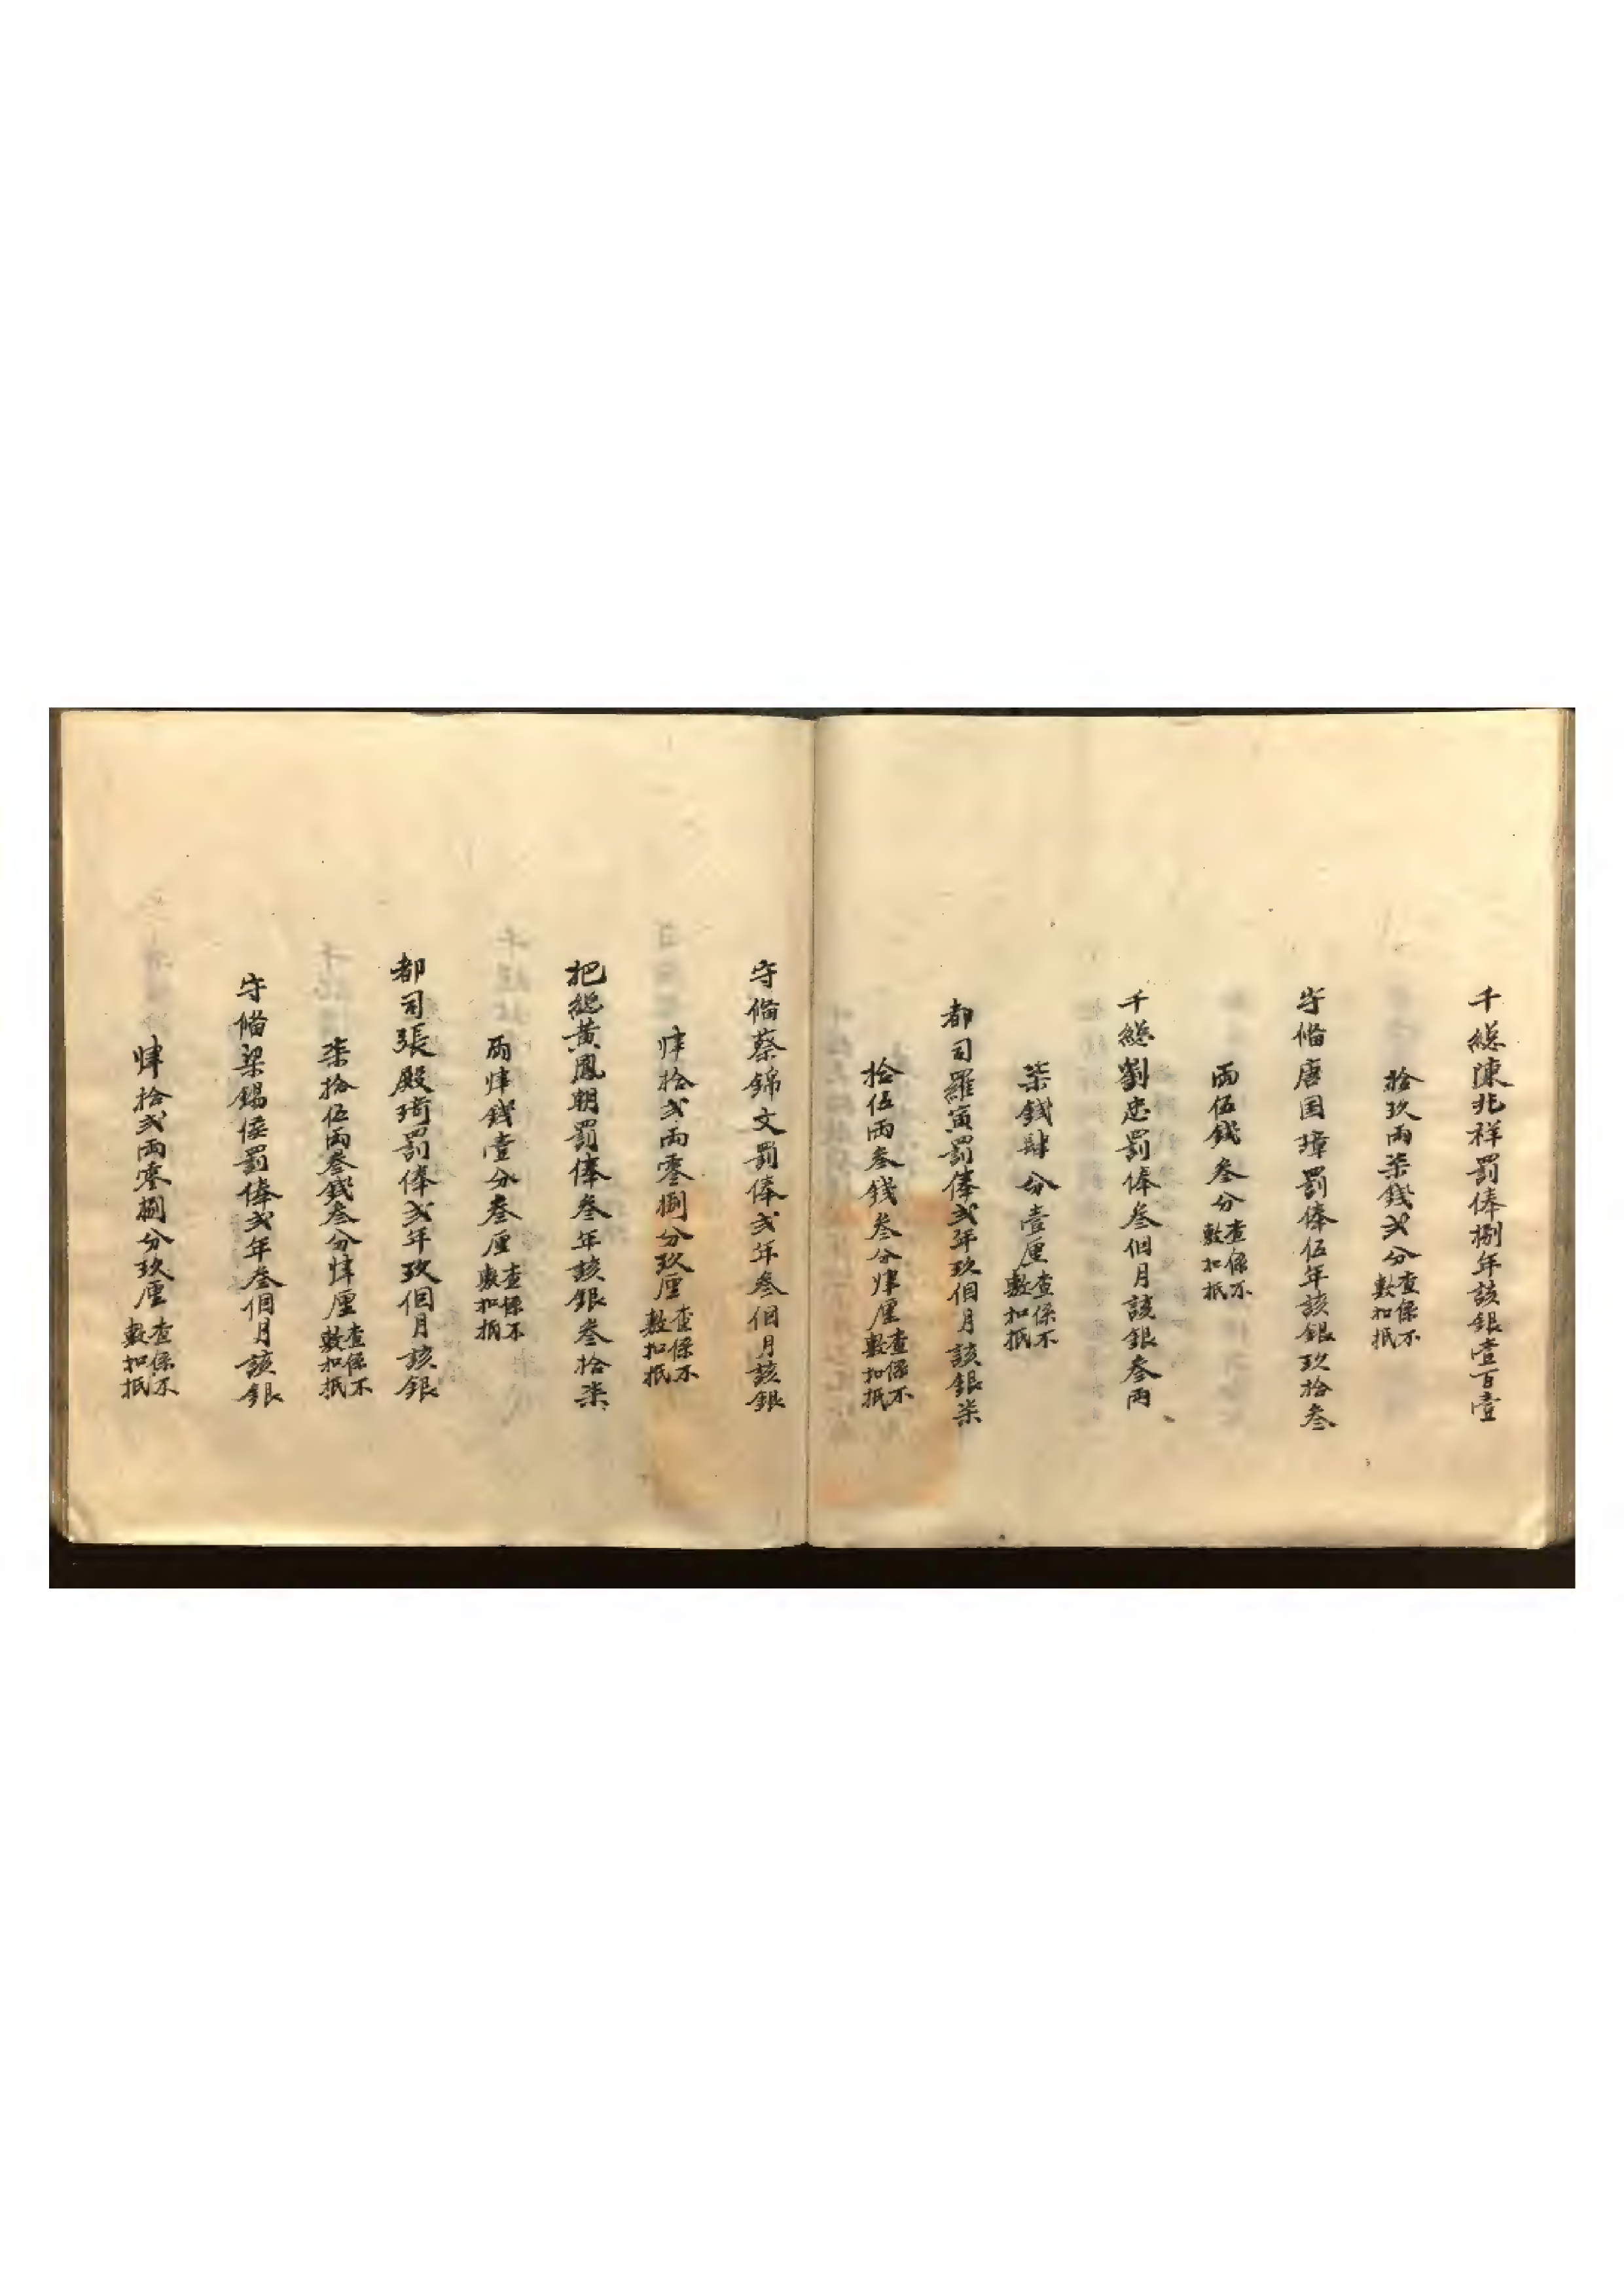 千縂陳兆祥罰俸捌年該銀壹百壹
拾玖兩柒錢弍分查係不敷扣抵
守備唐国璋罰俸伍年該銀玖拾叁
兩伍錢叁分查係不敷扣抵
千縂劉忠罰俸叁個月該銀叁兩
柒錢肆分壹厘查係不敷扣抵
都司羅寅罰俸弍年玖個月該銀柒
拾伍兩叁錢叁分肆厘查係不敷扣抵
守備蔡錦文罰俸弍年叁個月該銀
肆拾弍兩零捌分玖厘查係不敷扣抵
把縂黃鳳朝罰俸叁年該銀叁拾柒
兩肆錢壹分叁厘查係不敷扣抵
都司張殿琦罰俸弍年玖個月該銀
柒拾伍兩叁錢叁分肆厘查係不敷扣抵
守備梁錫罰俸弍年叁個月該銀
肆拾弍兩零捌分玖厘查係不敷扣抵